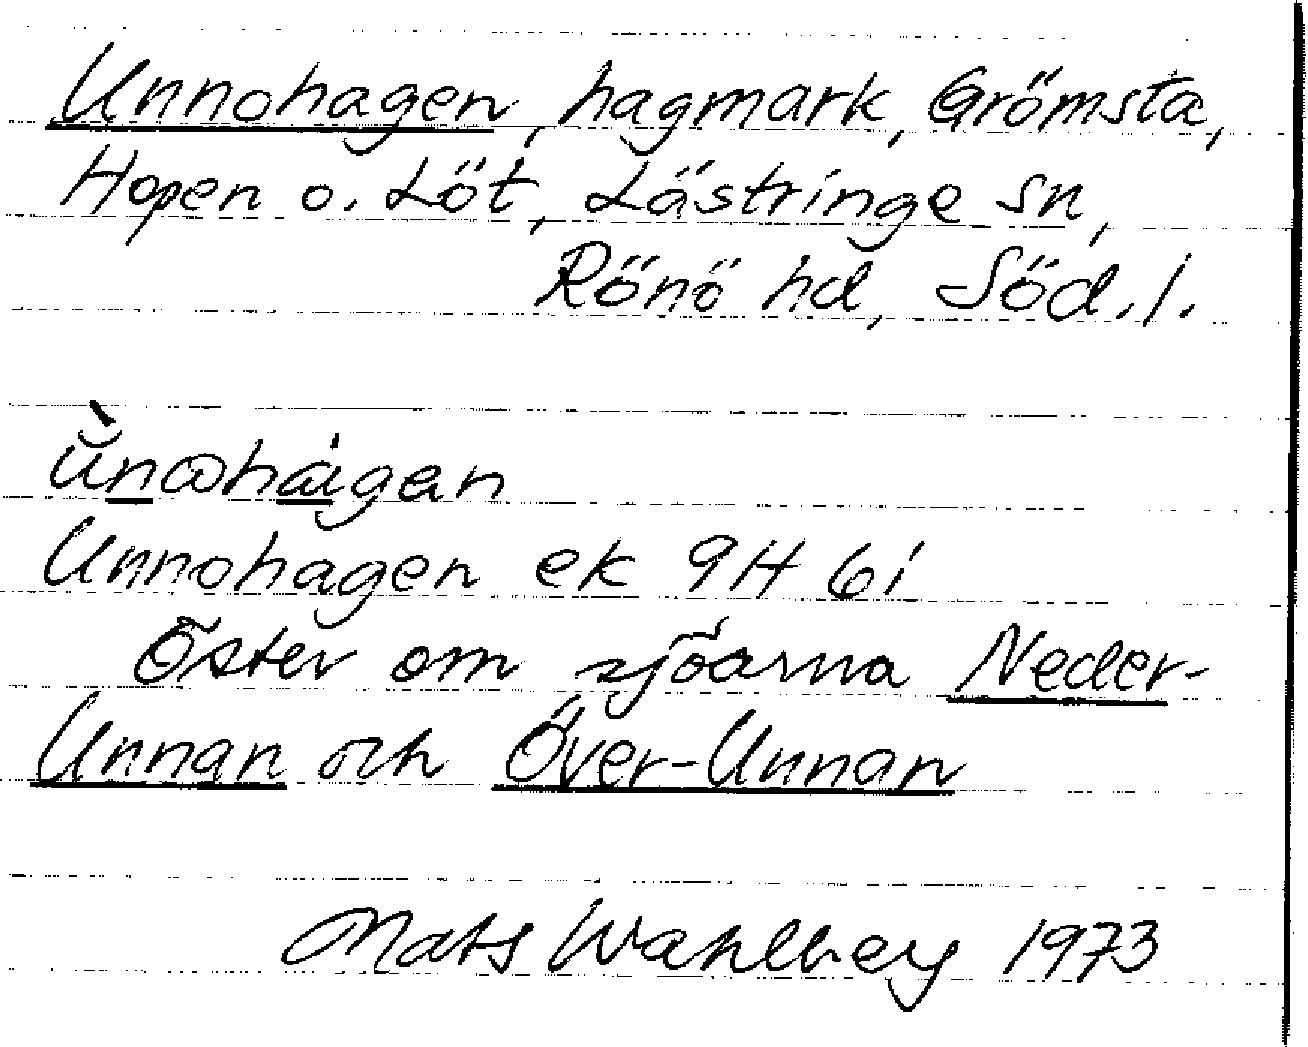 Unnohagen, hagmark, Grömsta,
Hopen o. Löt, Lästringe sn,
Rönö hd, Söd. l.
Unnohagen ek 9H 6i
Öster om sjöarna Neder-
Unnan och Över-Unnan
Mats Wahlberg 1973